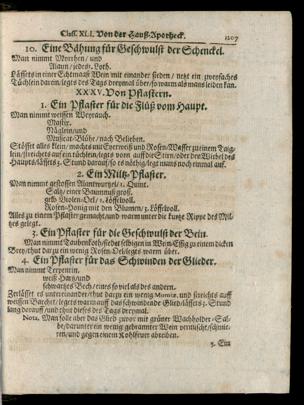 Claſſ. XLI. Von der Hauß-Apotheck. 1207
10. Eine Bähung für Geſchwulſt der Schenckel.
Man nimmt Myrrhen / und
Alaun / jedes 1. Loth.
Läſſets in einer Echtmaaß Wein mit einander ſieden / netzt ein zweyfaches
Tüchlein darein / legts des Tags dreymal über / ſo warm als mans leiden kan.
XXXV. Von Pflaſtern.
1. Ein Pflaſter für die Flüß vom Haupt.
Man nimmt weiſſen Weyrauch.
Maſtix.
Näglein / und
Muſcat-Blühe / nach Belieben.
Stöſſet alles klein / machts mit Eyerweiß und Roſen-Waſſer zu einem Taig-
lein / ſtreichets auf ein tüchlein / legts vorn auf die Stirn / oder den Würbel des
Haupts / läſſets 3. Stund darauf / ſo es nöthig / legt mans noch einmal auf.
2. Ein Miltz-Pflaſter.
Man nimmt geſtoſſen Alantwurtzel / 1. Quint.
Saltz / einer Baumnuß groß.
gelb Violen-Oel / 1. Löffelvoll.
Roſen-Honig mit den Blumen / 3. Löffelvoll.
Alles zu einem Pflaſter gemacht / und warm unter die kurtze Rippe des Mil-
tzes gelegt.
3. Ein Pflaſter für die Geſchwulſt der Bein.
Man nimmt Taubenkoth / ſiedet ſelbigen in Wein-Eſſig zu einem dicken
Brey / thut darzu ein wenig Roſen-Oel / legets warm über.
4. Ein Pflaſter für das Schwinden der Glieder.
Man nimmt Terpentin.
weiß Hartz / und
ſchwartzes Bech / eines ſo viel als des andern.
Zerläſſet es untereinander / thut darzu ein wenig Mumia, und ſtreichts auff
weiſſen Barchet / legets warm auff das ſchwindende Glied / läſſets 3. Stund
lang darauff / und thut dieſes des Tags dreymal.
Nota. Man ſolle aber das Glied zuvor mit grüner Wachholder-Sal-
be / darunter ein wenig gebrannter Wein vermiſcht / ſchmie-
ren / und gegen einem Kohlfeuer abreiben.
5. Ein